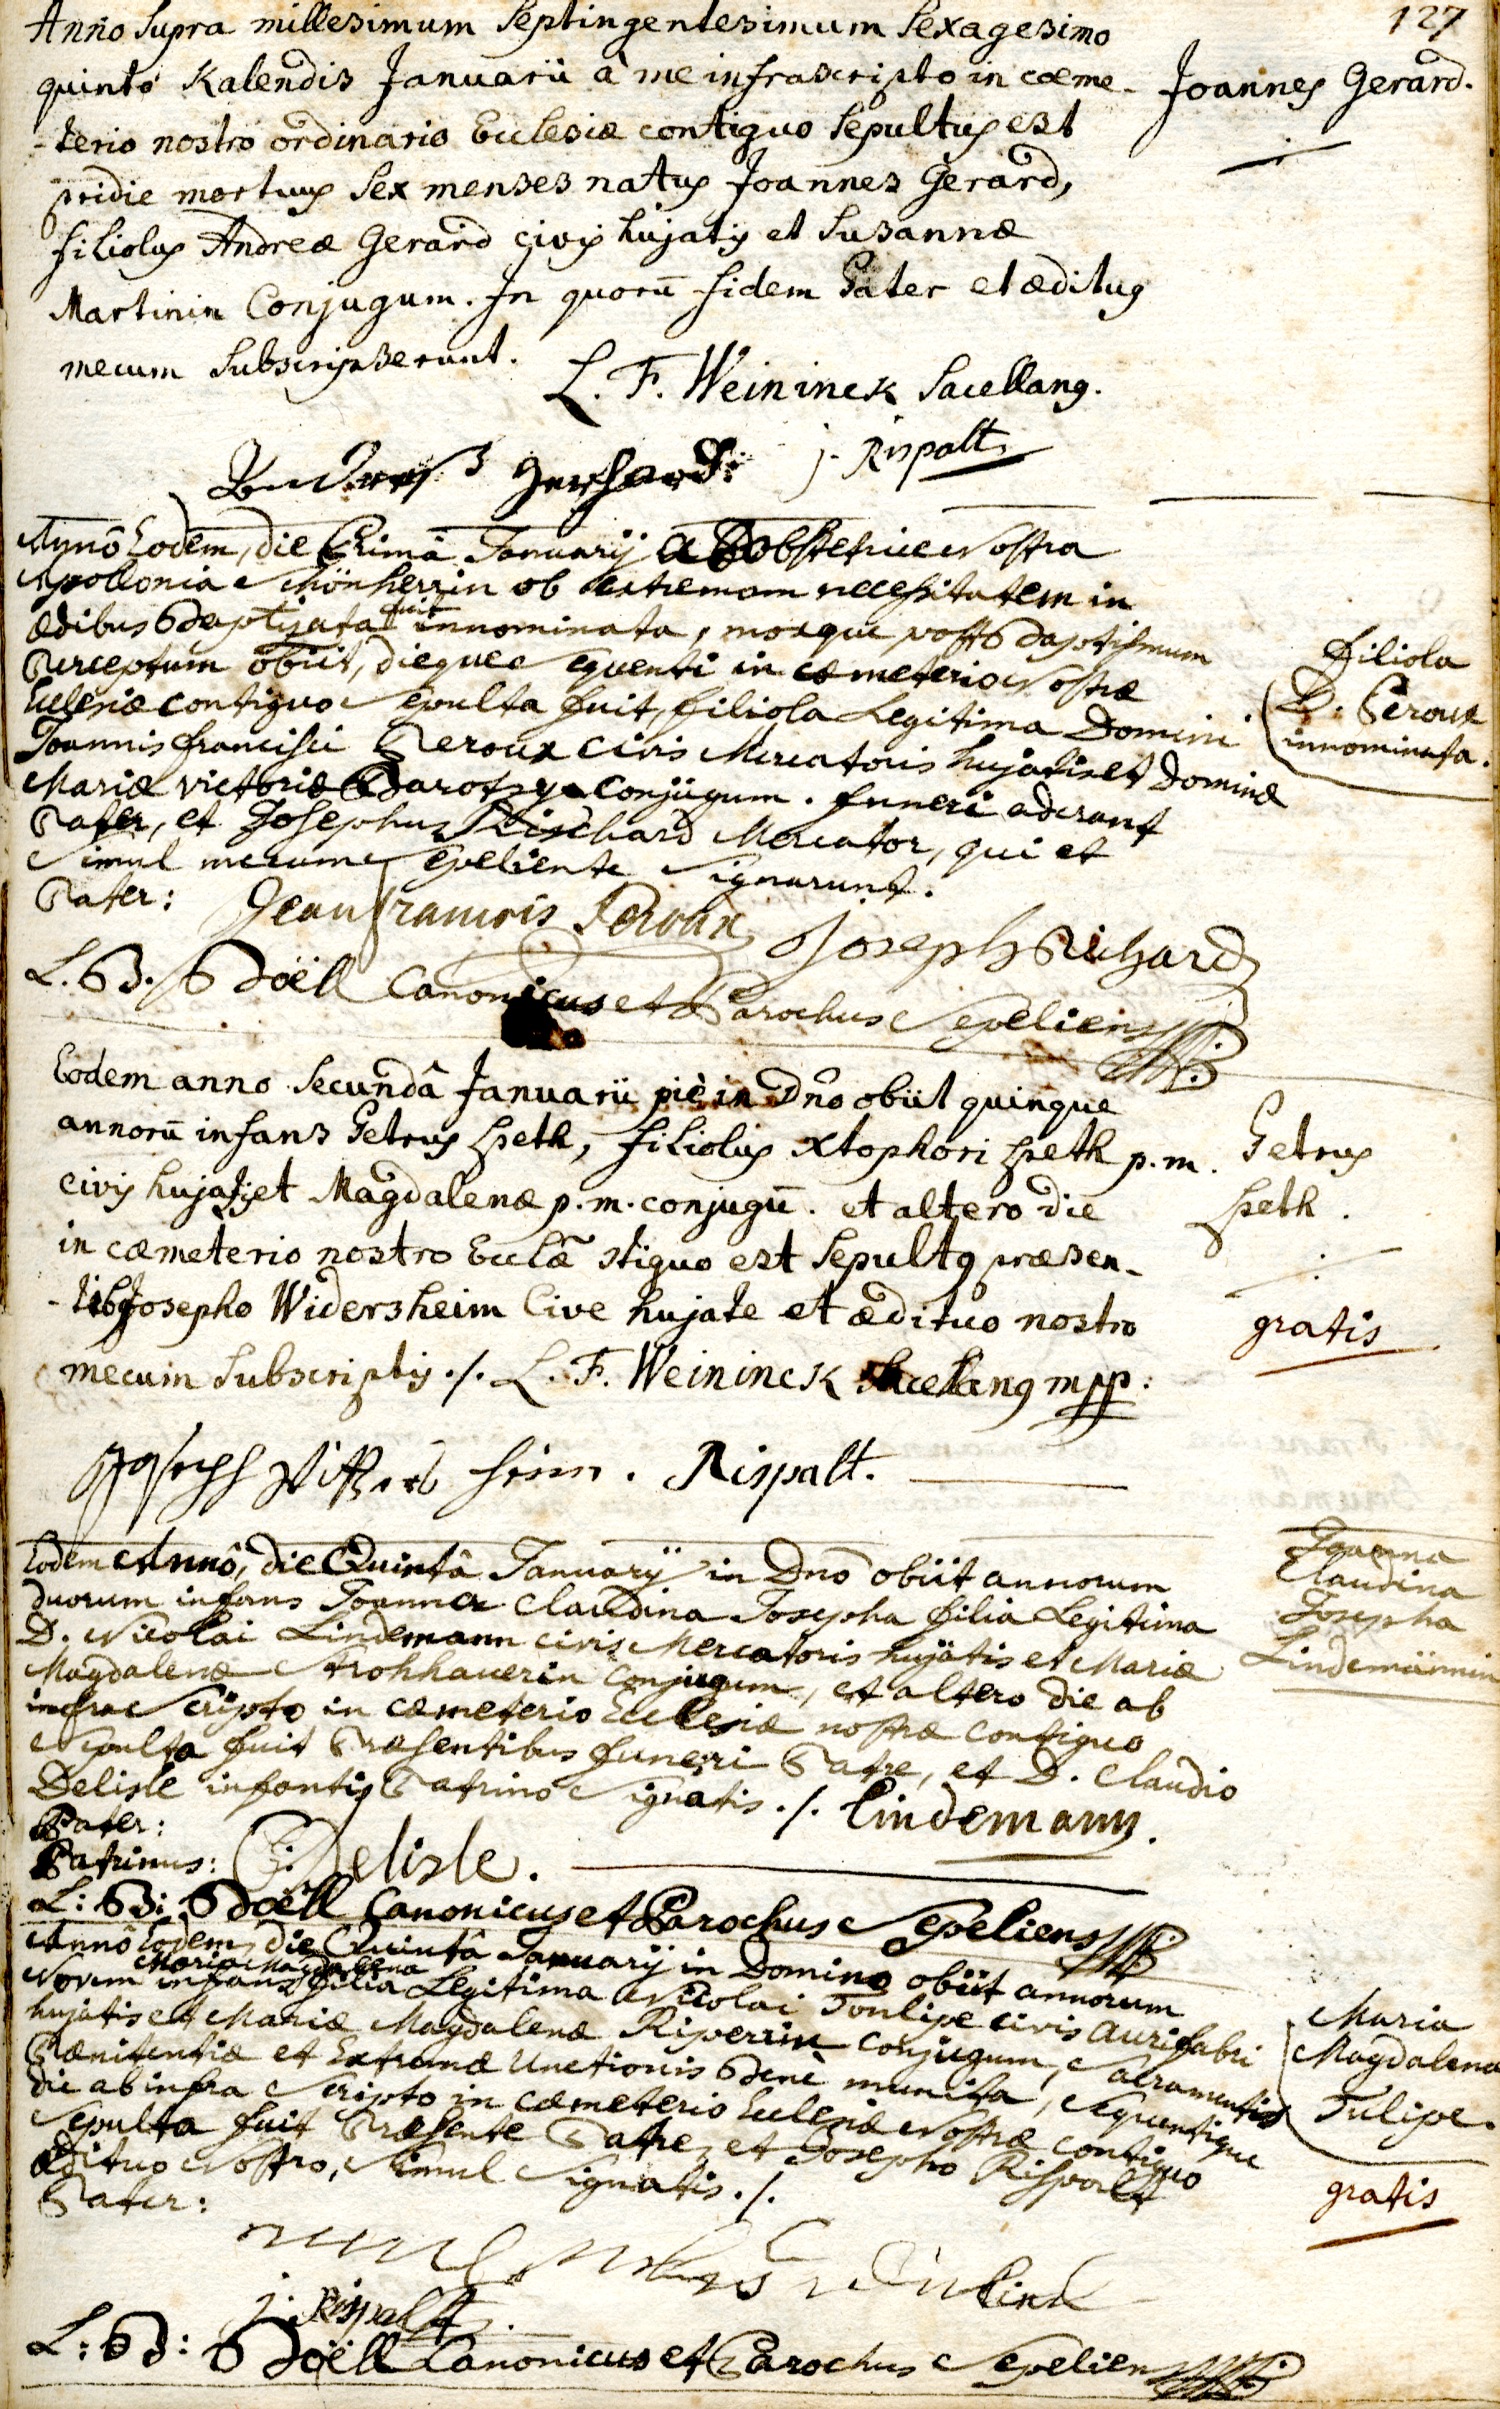 127
Anno supra millesimum septingentesimum sexagesimo
quinto Kalendis Januarii à me infrascripto in cœme-
-terio nostro ordinario Ecclesiæ contiguo sepultus est
pridie mortuus sex menses natus Joannes Gerard,
filiolus Andreæ Gerard civis hujatis et Susannæ
Martinin Conjugum. In quorū fidem Pater et ædituus
mecum subscripserunt.
L. F. Weininck Sacellanus.
j. Rispalt
Joannes Gerard.
Annô Eodem, die Primâ Januarij ab obstetrice Nostra
Apollonia Schönherrin ob extremam necessitatem in
ædibus baptizata fuit innominata, moxque post baptismum
perceptum obiit, dieque sequenti in cœmeterio Nostræ
Ecclesiæ contiguo sepulta fuit, filiola Legitima Domini
Joannis Francisci Peroux civis Mercatoris hujatis et Dominæ
Mariæ victoriæ conjugum. funeri aderant
Pater, et Josephus Richard Mercator, qui et
simul mecum sepeliente signarunt.
Pater: Jean francois Peroux
Joseph Richard
L. B. Boëll Canonicus et Parochus sepeliens
filiola
D. Peroux
innominata.
Eodem anno secundâ Januarii piè in Dño obiit quinque
annorū infans Petrus speth, filiolus xtophori speth p.m.
civis hujatis et Magdalenæ p.m. conjugū. et altero die
in cœmeterio nostro Ecclæ stiguo est sepultus præsen-
-tibus Josepho Widersheim Cive hujate et ædituo nostro
mecum subscriptis ./. L. F. Weininck Sacellanus mpp:
Rispalt.
Petrus
speth.
gratis
Eodem Annô, die Quintâ Januarij in Dno obiit annorum
duorum infans Joanna Claudina Josepha filia Legitima
D. Nicolai Lindemann civis Mercatoris hujatis et Mariæ
Magdalenæ Strohhauerin conjugum, et altero die ab
infra Scripto in cœmeterio Ecclesiæ nostræ contiguo
Sepulta fuit Præsentibus funeri Patre, et D. Claudio
Delisle infantis Patrino signatis ./. Lindemann.
Pater:
Patrinus: C. Delisle.
L: B: Boëll Canonicus et Parochus Sepeliens
Joanna
Claudina
Josepha
Lindemännin
Annô Eodem, die Quintâ Januarij in Domino obiit annorum
Maria Magdalena
Novem infans filia Legitima Nicolai Toulipe civis Aurifabri
hujatis et Mariæ Magdalenæ Riperrin conjugum, Sacramentis
Pænitentiæ et Extremæ Unctionis benè munita, Sequentique
die ab infra Scripto in cœmeterio Ecclesiæ Nostræ contiguo
Sepulta fuit Præsente Patre, et Josepho Rispalt
ædituo Nostro, simul signatis ./.
Pater:
j. Rispalt
L: B: Boëll Canonicus et Parochus Sepeliens
Maria
Magdalena
Tulipe.
gratis